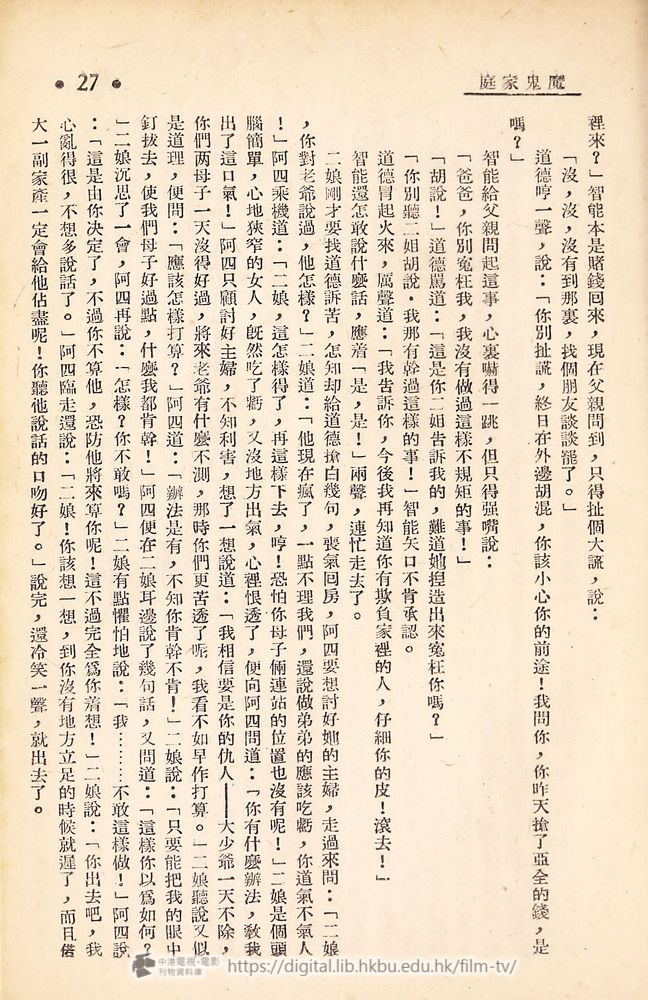 魔鬼家庭
• 27 •
裡來？」智能本是賭錢回來，現在父親問到，只得扯個大謊，說：
「沒，沒，沒有到那裏，我個朋友談談罷了。」
道德哼一聲，說：「你別扯謊，終日在外邊胡混，你該小心你的前途！我問你，你昨天搶了亞全的錢，是
嗎？」
智能給父親問起這事，心裏嚇得一跳，但只得强嘴說：
「爸爸，你別冤枉我，我沒有做過這樣不規矩的事！」
「胡說！」道德罵道：「這是你二姐告訴我的，難道她揑造出來冤枉你嗎？」
「你別聽二姐胡說．我那有幹過這樣的事！」智能矢口不肯承認。
道德冒起火來，厲聲道：「我告訴你，今後我再知道你有欺負家裡的人，仔細你的皮！滾去！」
智能還怎敢說什麼話，應着「是，是！」兩聲，連忙走去了。
二娘剛才要找道德訴苦，怎知却給道德搶白幾句，喪氣囘房，阿四要想討好她的主婦，走過來問：「二娘
，你對老爺說過，他怎樣？」二娘道：「他現在瘋了，一點不理我們，還說做弟弟的應該吃虧，你道氣不氣人
！」阿四乘機道：「二娘，這怎樣得了，再這樣下去，哼！恐怕你母子倆連站的位置也沒有呢！」二娘是個頭
腦簡單，心地狹窄的女人，旣然吃了虧，又沒地方出氣，心裡恨透了，便向阿四問道：「你有什麼辦法，敎我
出了這口氣！」阿四只顧討好主婦，不知利害，想了一想說道：「我相信要是你的仇人——大少爺一天不除，
你們两母子一天沒得好過，將來老爺有什麼不測，那時你們更苦透了呢，我看不如早作打算。」二娘聽說又似
是道理，便問：「應該怎樣打算？」阿四道：「辦法是有，不知你肯幹不肯！」二娘說：「只要能把我的眼中
釘拔去，使我們母子好過點，什麼我都肯幹！」阿四便在二娘耳邊說了幾句話，又問道：「這樣你以爲如何？
」二娘沉思了一會，阿四再說：「怎樣？你不敢嗎？」二娘有點懼怕地說：「我………不敢這樣做！」阿四說
：「這是由你决定了，不過你不算他，恐防他將來算你呢！這不過完全爲你着想！」二娘說：「你出去吧，我
心亂得很，不想多說話了。」阿四臨走還說：「二娘！你該想一想，到你沒有地方立足的時候就遲了，而且偌
大一副家產一定會給他佔盡呢！你聽他說話的口吻好了。」說完，還冷笑一聲，就出去了。
中港電視-電影
刊物資料庫
https://digital.lib.hkbu.edu.hk/film-tv/